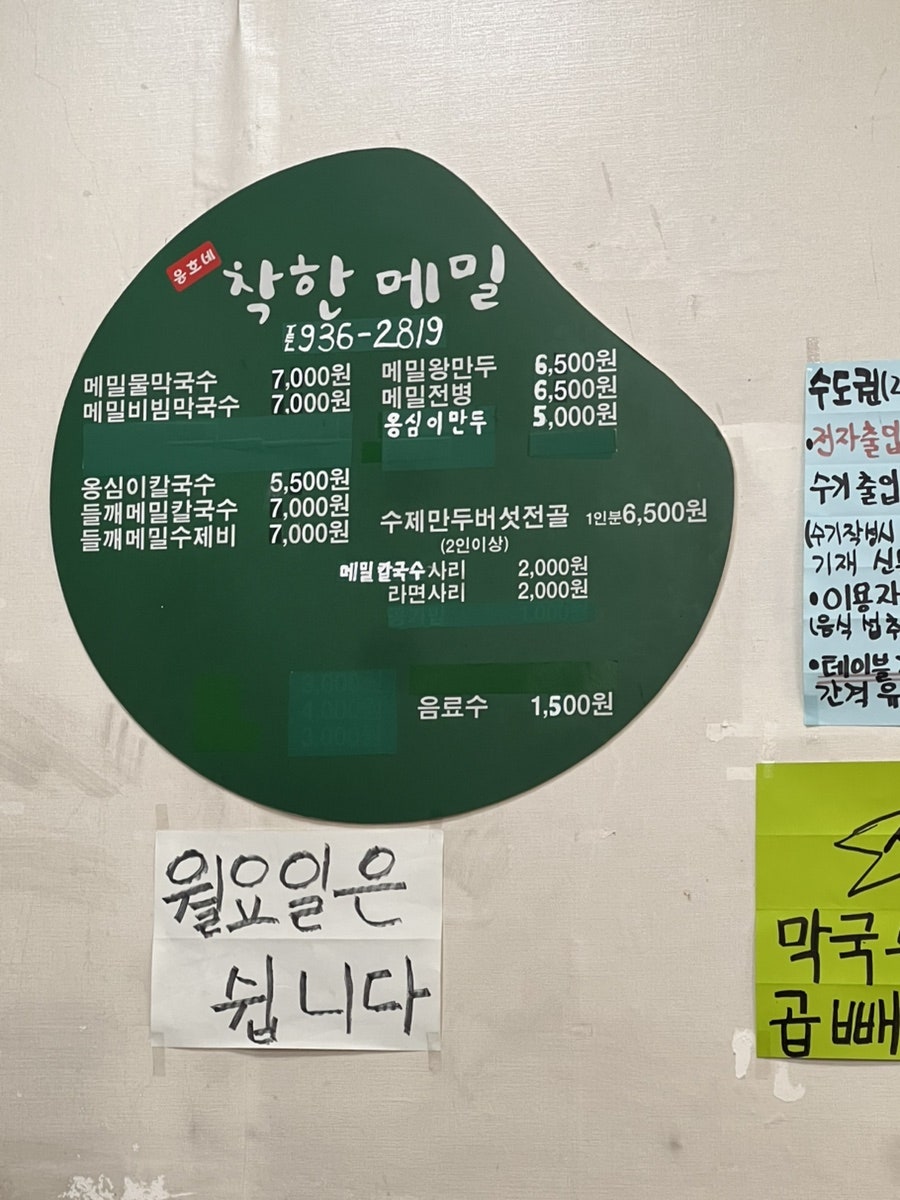 웅호네
착한 메밀
TEL 936-2819
메밀물막국수 7,000원
메밀비빔막국수 7,000원
옹심이칼국수 5,500원
들깨메밀칼국수 7,000원
들깨메밀수제비 7,000원
메밀왕만두 6,500원
메밀전병 6,500원
옹심이만두 5,000원
수제만두버섯전골 1인분6,500원
(2인이상)
메밀칼국수사리 2,000원
라면사리 2,000원
음료수 1,500원
월요일은
쉽니다
수도권(2
•전자출입
수기출입
(수기작성시
기재
•이용자
(음식 섭취
•테이블
간격 유
막국수
곱빼